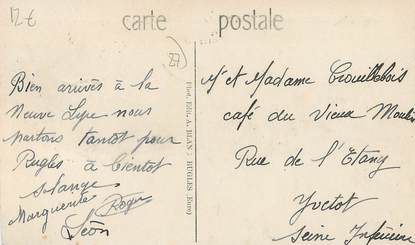 12€
carte postale
27
Bien arrivés à la
Neuve Lyre nous
partons tantot pour
Rugles à bientot
Solange
Marguerite Roger
Léon
Phot. Edit. A. BLAN RUGLES (Eure)
Mr et Madame
café du Vieux Moulin
Rue de l'Etang
Yvetot
Seine Inférieure